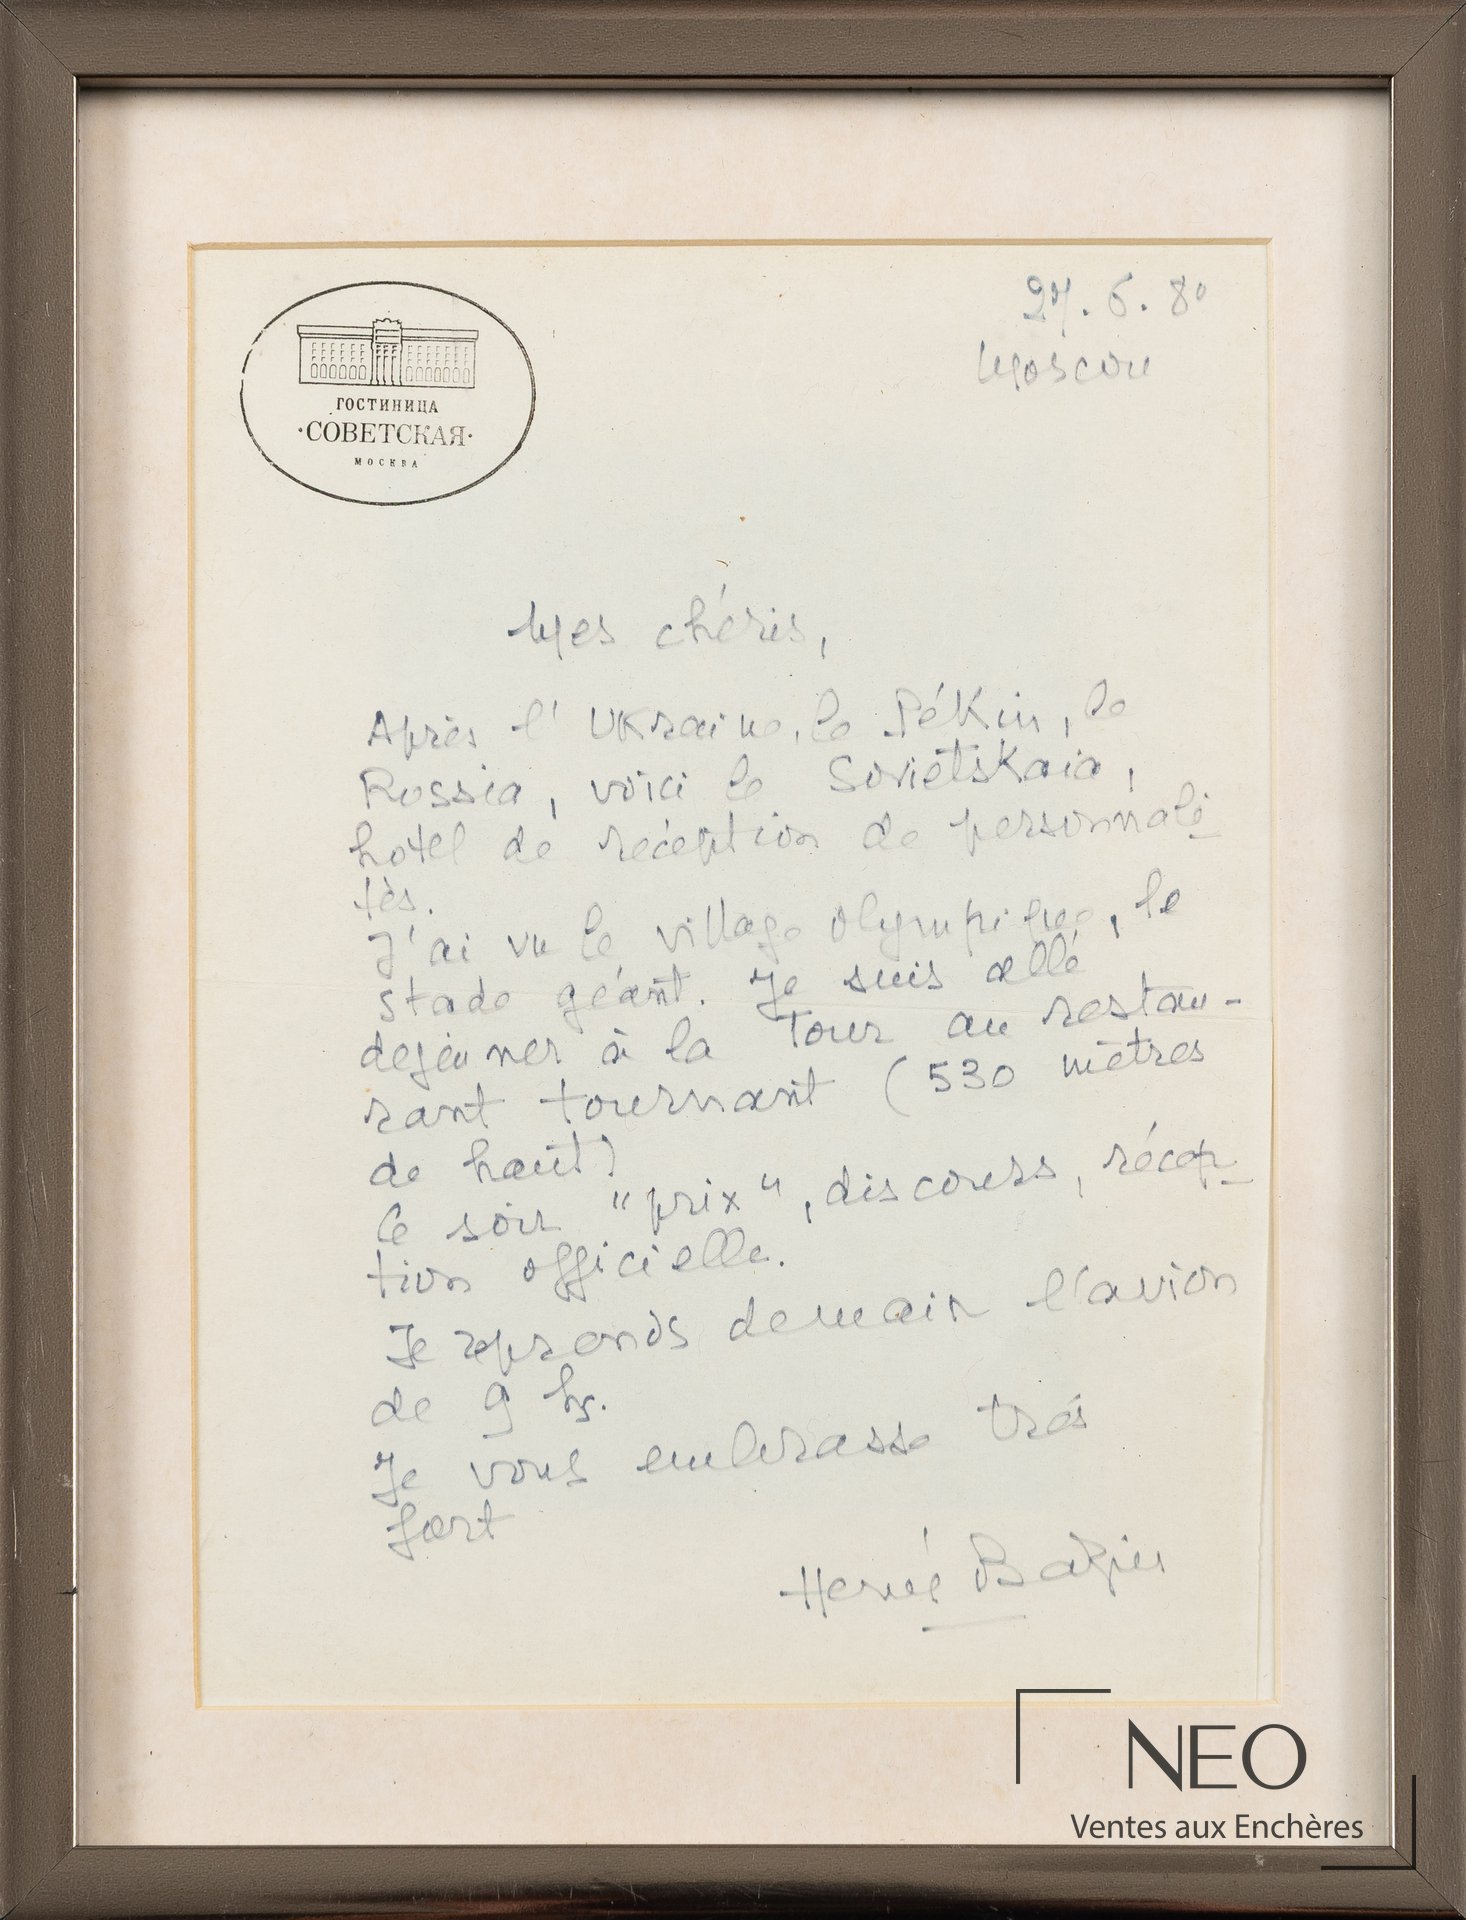 27.6.80
Moscou
ГОСТИНИЦА
·СОВЕТСКАЯ·
МОСКВА
Mes chéris,
Après l'Ukraine, le Pékin, le
Russia, voici le Soviétskaia,
hotel de réception de personnali-
tés.
J'ai vu le village olympique, le
stade géant. Je suis allé
dejeuner à la Tour au restau-
rant tournant (530 mètres
de haut)
Ce soir "prix", discours, récep-
tion officielle.
Je reprends demain l'avion
de 9 hs.
Je vous embrasse très
fort
Hervé Bazin
NEO
Ventes aux Enchères